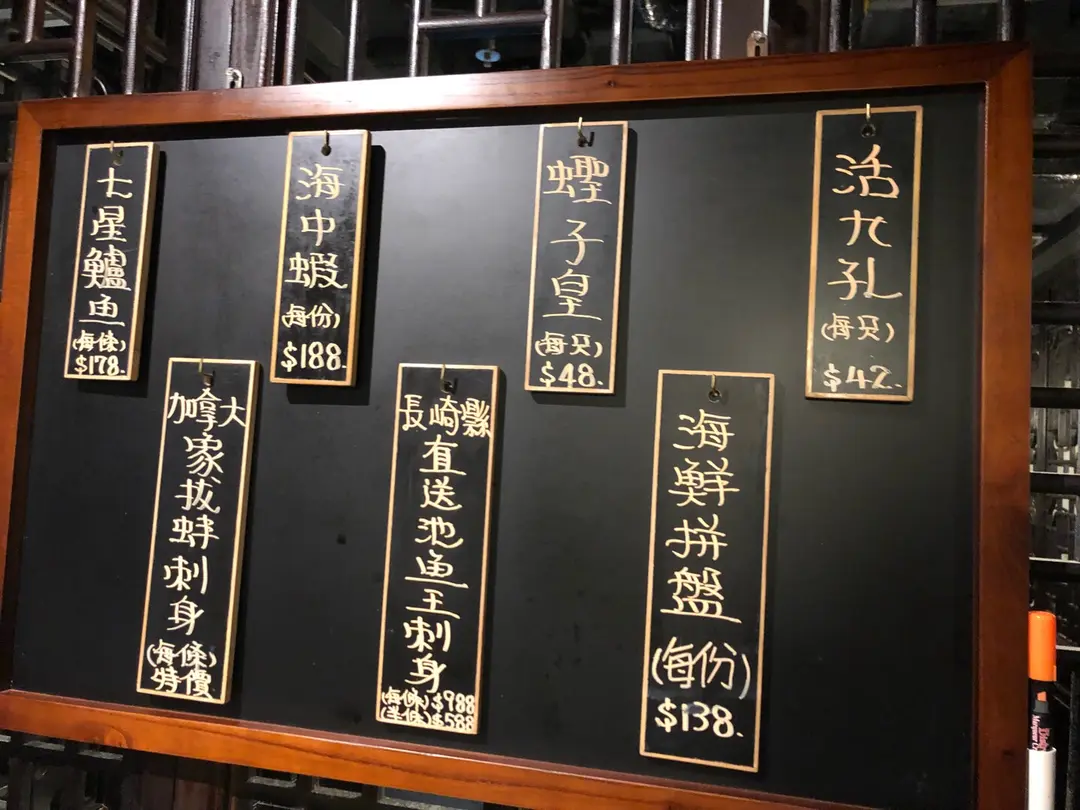 七星鱸鱼
(每條)
$178.
海中蝦
(每份)
$188.
蟶子皇
(每只)
$48.
活九孔
(每只)
$42.
加拿大
象拔蚌刺身
(每條)
特價
長崎縣
直送池鱼王刺身
(每條)$988
(半條)$588
海鮮拼盤
(每份)
$138.